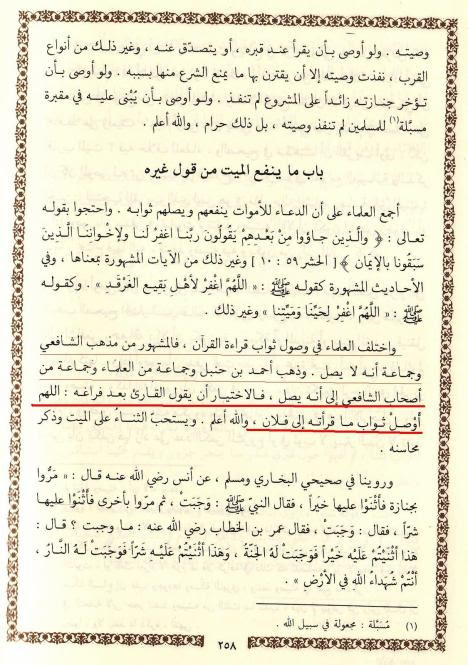 وصيته . ولو أوصى بأن يقرأ عند قبره ، أو يتصدّق عنه ، وغير ذلك من أنواع
القرب ، نفذت وصيته إلا أن يقترن بها ما يمنع الشرع منها بسببه . ولو أوصى بأن
تؤخر جنازته زائداً على المشروع لم تنفذ . ولو أوصى بأن يُبْنى عليه في مقبرة
مسبَّلة(١) للمسلمين لم تنفذ وصيته ، بل ذلك حرام ، والله أعلم .
باب ما ينفع الميت من قول غيره
أجمع العلماء على أن الدعاء للأموات ينفعهم ويصلهم ثوابه . واحتجوا بقوله
تعالى : ﴿ والَّذينَ جاؤوا مِنْ بَعْدِهِمْ يَقُولُونَ رَبَّنا اغْفِرْ لَنا ولإخْوانِنا الَّذينَ
سَبَقُونا بالإيمَانِ ﴾ [ الحشر ٥٩ : ١٠ ] وغير ذلك من الآيات المشهورة بمعناها ، وفي
الأحاديث المشهورة كقوله ﷺ : « اللَّهُمَّ اغْفِرْ لأهْلِ بَقِيعِ الغَرْقَدِ » . وكقوله
ﷺ : « اللَّهُمَّ اغْفِرْ لِحَيِّنَا وَمَيِّتِنا » وغير ذلك .
واختلف العلماء في وصول ثواب قراءة القرآن ، فالمشهور من مذهب الشافعي
وجماعة أنه لا يصل . وذهب أحمد بن حنبل وجماعة من العلماء وجماعة من
أصحاب الشافعي إلى أنه يصل ، فالاختيار أن يقول القارئ بعد فراغه : اللهم
أوْصِلْ ثواب ما قرأته إلى فلان ، والله أعلم . ويستحب الثناءُ على الميت وذكر
محاسنه .
وروينا في صحيحي البخاري ومسلم ، عن أنس رضي الله عنه قال : « مَرُّوا
بجنازة فأثْنَوْا عليها خيْراً ، فقال النبيّ ﷺ : وَجَبَتْ ، ثم مرّوا بأخرى فأثْنَوْا عليها
شرّاً ، فقال : وَجَبَتْ ، فقال عمر بن الخطاب رضي الله عنه : ما وجبت ؟ قال :
هَذا أثْنَيْتُمْ عَلَيْهِ خَيْراً فَوَجَبَتْ لَهُ الجَنَّةُ ، وَهَذَا أثْنَيْتُمْ عَلَيْهِ شَرّاً فَوَجَبَتْ لَهُ النَّارُ ،
أنْتُمْ شُهَداءُ اللَّهِ في الأرْضِ » .
(١) مُسَبَّلة : مجعولة في سبيل الله .
٢٥٨